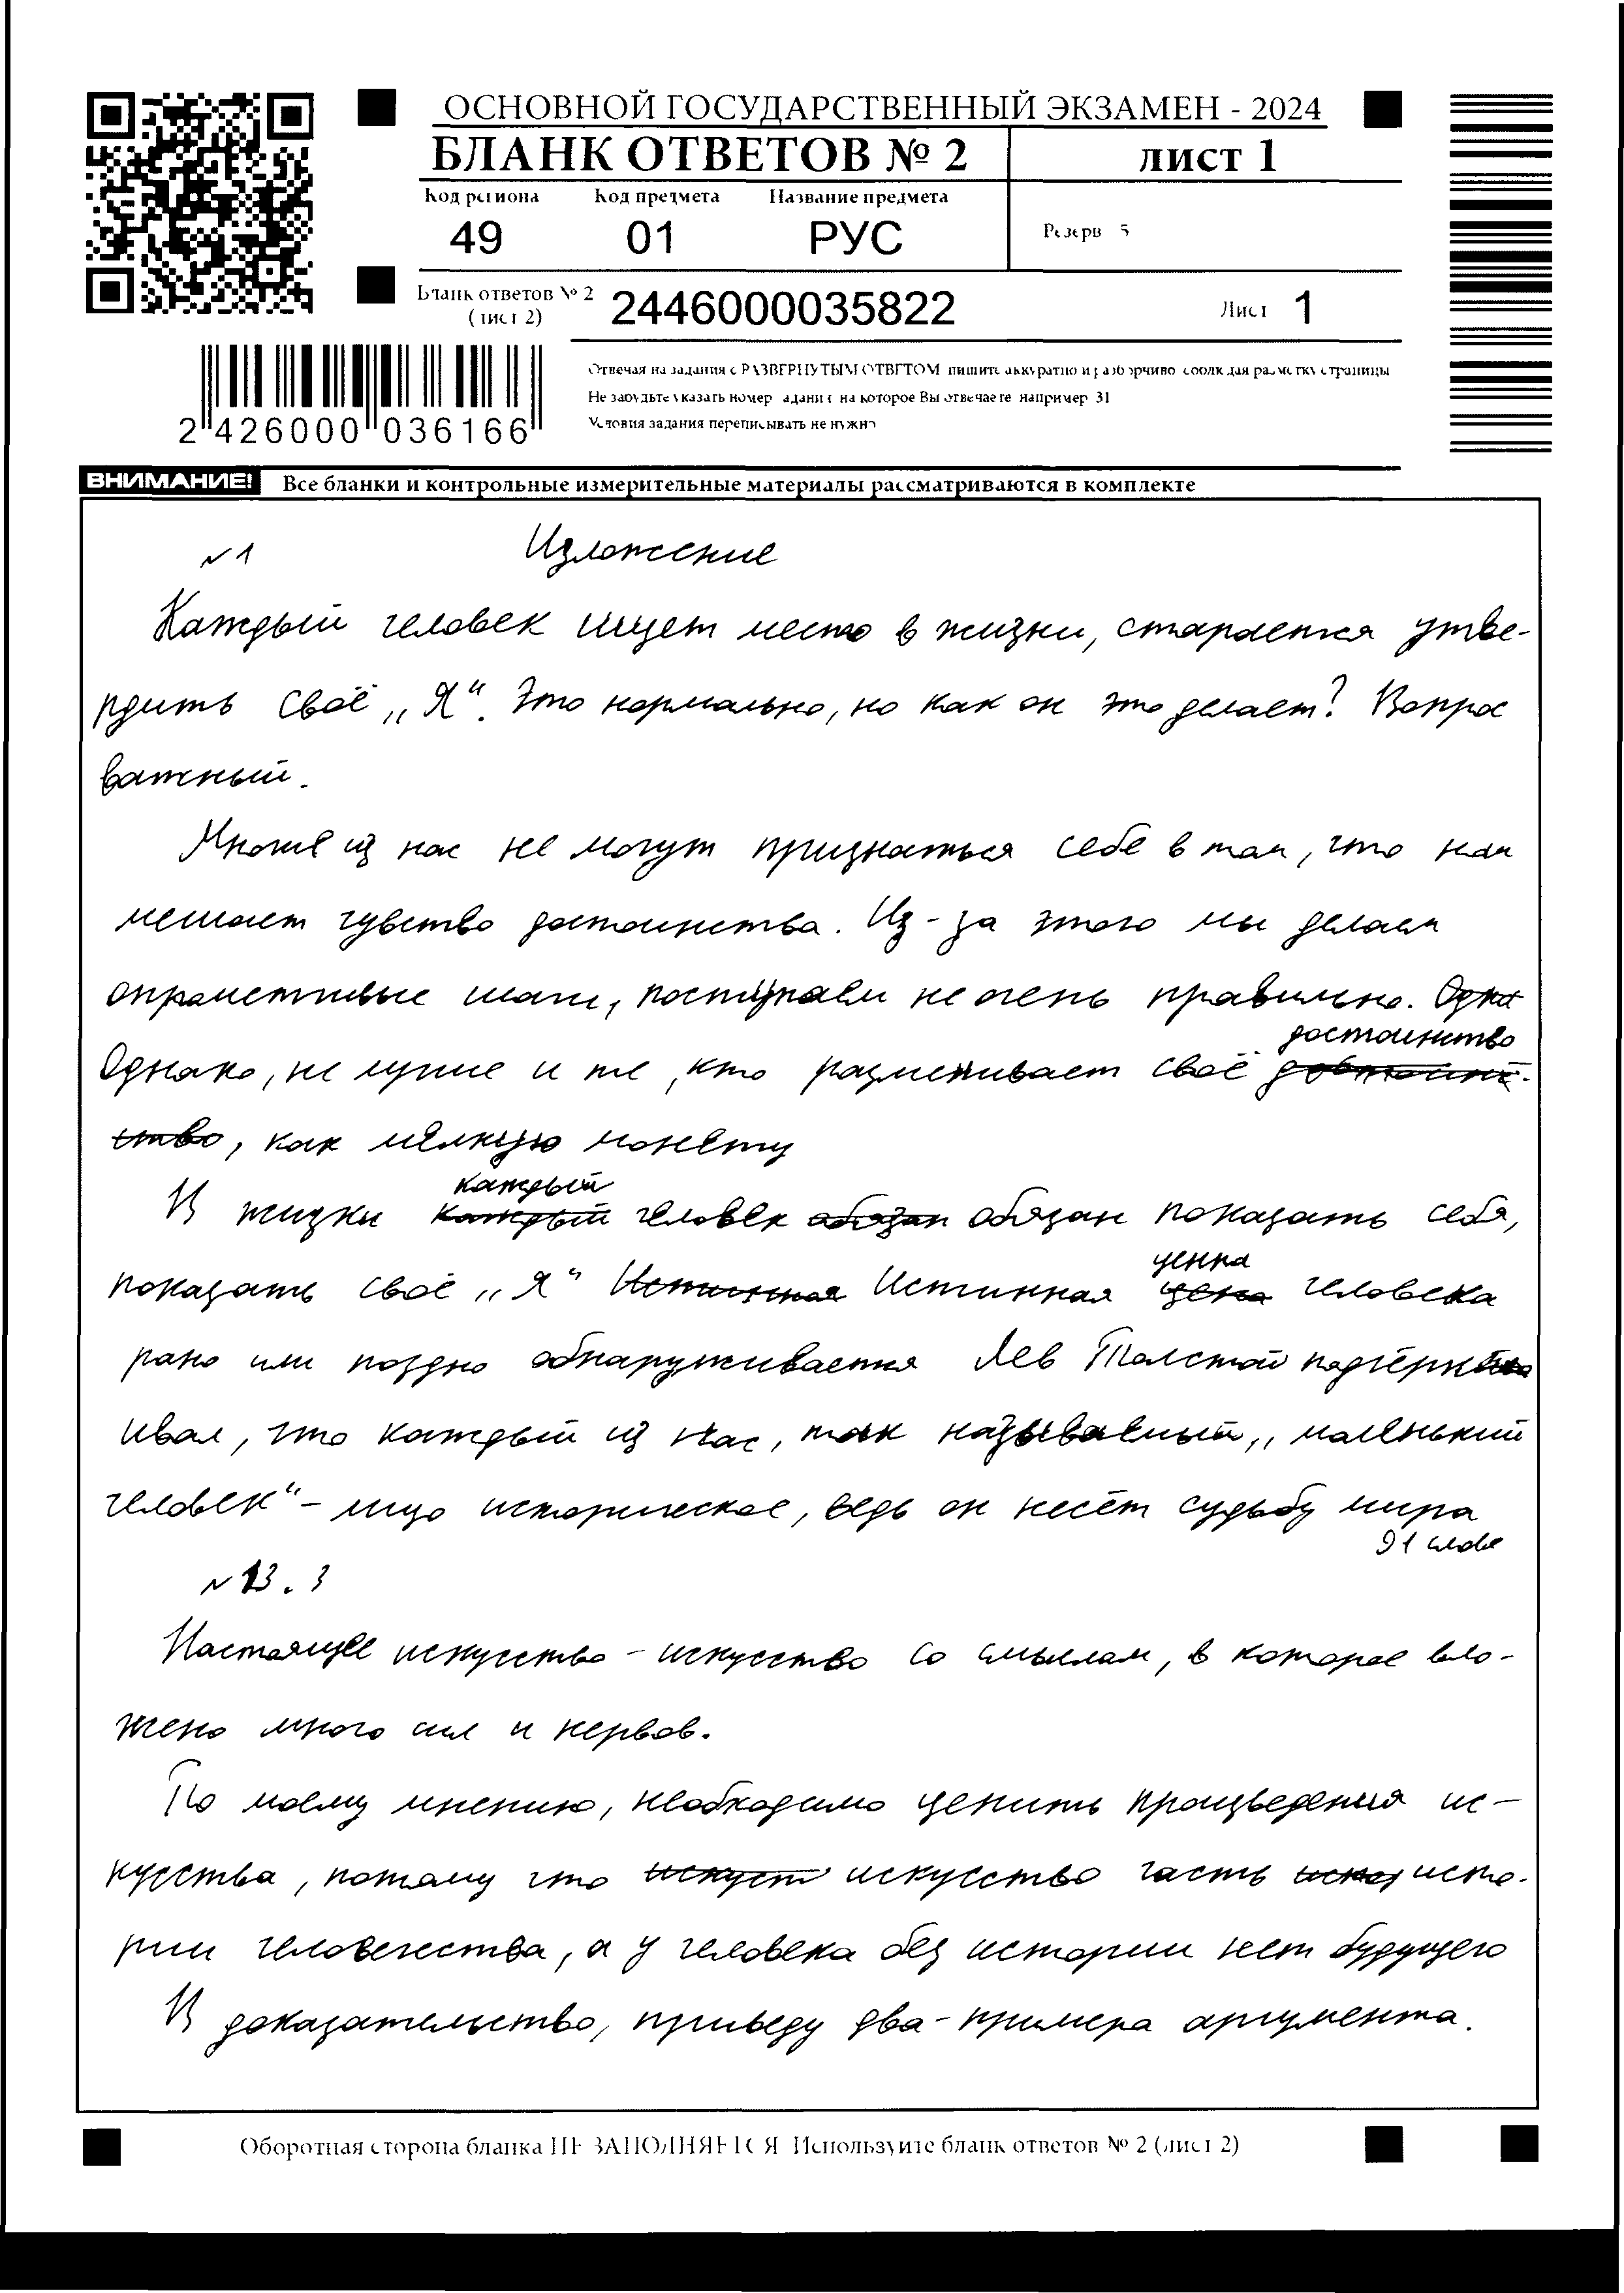 ОСНОВНОЙ ГОСУДАРСТВЕННЫЙ ЭКЗАМЕН - 2024
БЛАНК ОТВЕТОВ № 2
ЛИСТ 1
Код региона Код предмета Название предмета
49 01 РУС
Резерв 5
Бланк ответов № 2 (лист 2) 2446000035822
Лист 1
2 426000 036166
Отвечая на задания с РАЗВЕРНУТЫМ ОТВЕТОМ пишите аккуратно и разборчиво соблюдая разметку страницы
Не забудьте указать номер задания на которое Вы отвечаете например 31
Условия задания переписывать не нужно
ВНИМАНИЕ! Все бланки и контрольные измерительные материалы рассматриваются в комплекте
№1 Изложение
Каждый человек ищет место в жизни, старается утве-
рдить своё „Я“. Это нормально, но как он это делает? Вопрос
важный.
Многие из нас не могут признаться себе в том, что нам
мешает чувство достоинства. Из-за этого мы делаем
опрометчивые шаги, поступаем не очень правильно. Одна
Однако, не лучше и те, кто разменивает своё достоинство
, как мелкую монету
В жизни каждый человек обязан обязан показать себя,
показать своё „Я“ Истинная Истинная ценна человека
рано или поздно обнаруживается Лев Толстой подчёрк
ивал, что каждый из нас, так называемый „ маленький
человек“ – лицо историческое, ведь он несёт судьбу мира
91 слов
№13.3
Настоящее искусство – искусство со смыслом, в которое вло-
жено много сил и нервов.
По моему мнению, необходимо ценить произведения ис-
кусства, потому что искуст искусство часть исто-
рии человечества, а у человека без истории нет будущего
В доказательство, приведу два-примера аргумента.
Оборотная сторона бланка НЕ ЗАПОЛНЯЕТСЯ Используйте бланк ответов № 2 (лист 2)